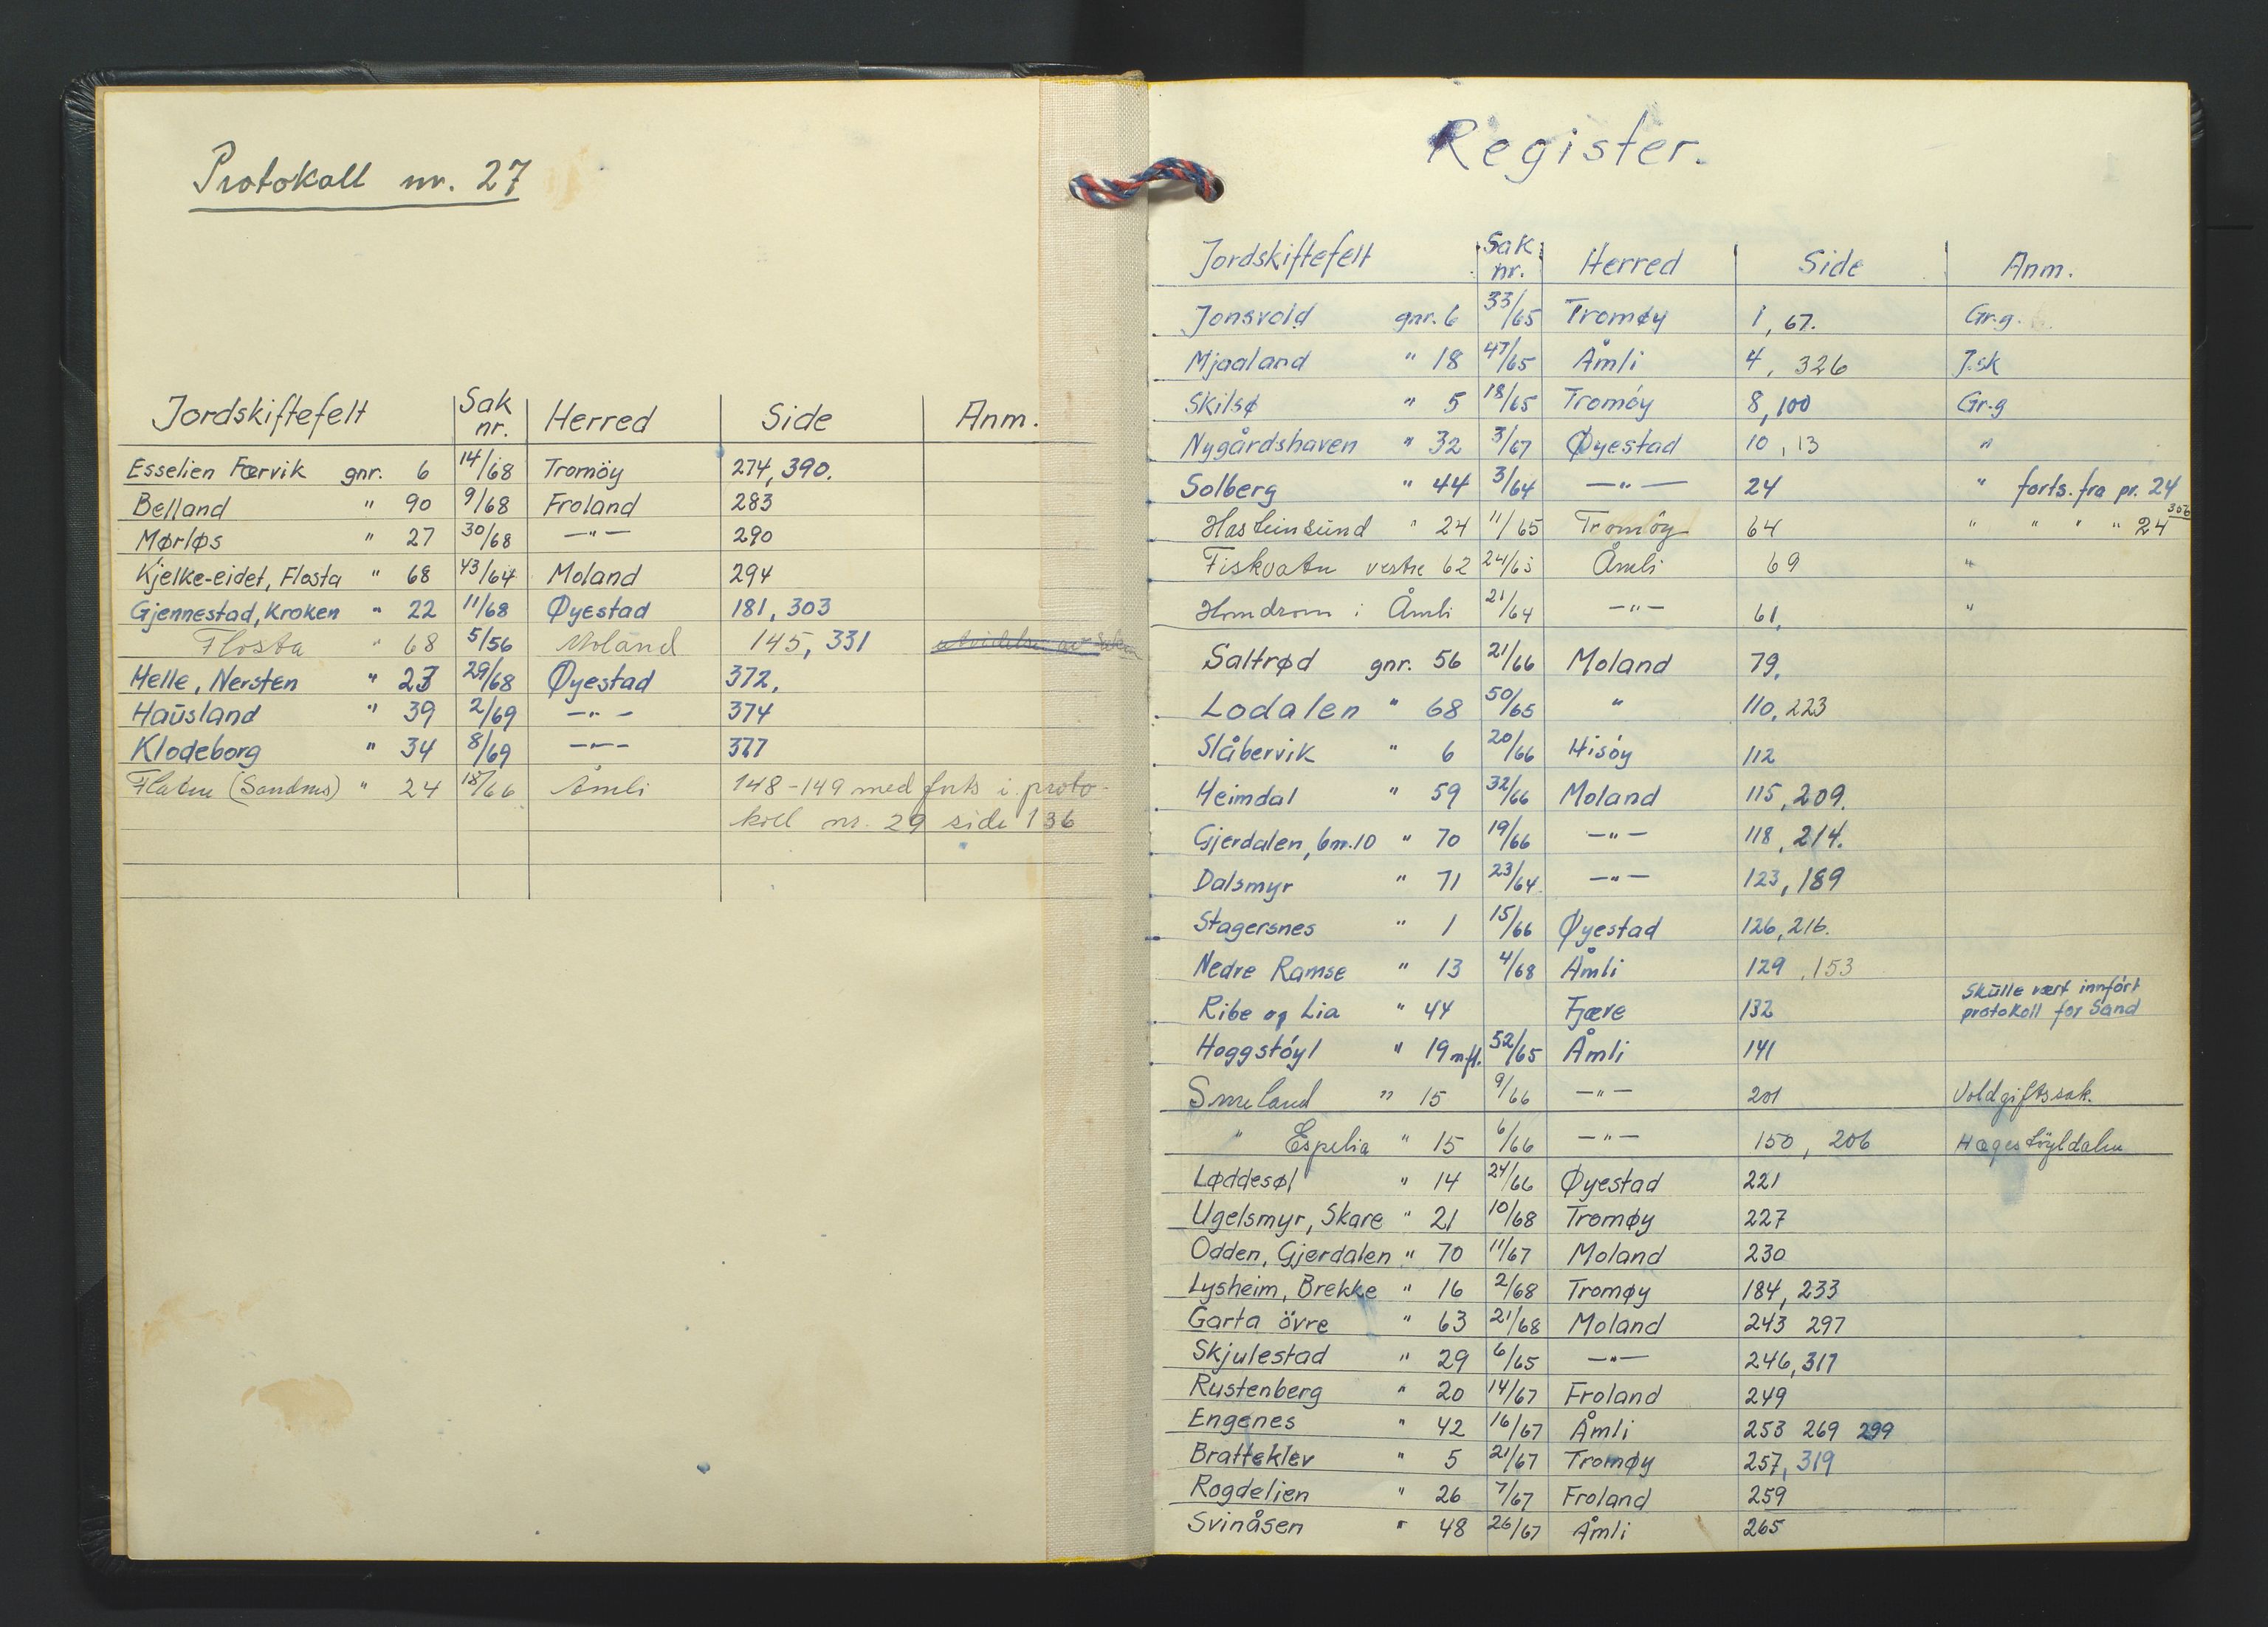 Protokoll nr. 27
Jordskiftefelt Sak nr. Herred Side Anm.
Esselien Færvik gnr. 6 14/68 Tromöy 274, 390.
Belland " 90 9/68 Froland 283
Mørløs " 27 30/68 —"— 290
Kjelke-eidet, Flosta " 68 43/64 Moland 294
Gjennestad, Kroken " 22 11/68 Øyestad 181, 303
Flosta " 68 5/56 Moland 145, 331 utvidelse av saken
Helle, Nersten " 23 29/68 Øyestad 372.
Haüsland " 39 2/69 —"— 374
Klodeborg " 34 8/69 —"— 377
Flaten (Sandnes) " 24 18/66 Åmli 148-149 med forts i proto-
koll nr. 29 side 136
Register.
Jordskiftefelt Sak nr. Herred Side Anm.
Jonsvold gnr. 6 33/65 Tromøy 1, 67. Gr.g.
Mjaaland " 18 47/65 Åmli 4, 326 J.sk
Skilsø " 5 18/65 Tromóy 8, 100 Gr.g
Nygårdshaven " 32 3/67 Øyestad 10, 13 "
Solberg " 44 3/64 —"— 24 " forts. fra pr. 24
Hasteinsund " 24 11/65 Tromöy 64 " " " " 24 356
Fiskvatn vestre 62 24/65 Åmli 69 "
Homdrom i Åmli 21/64 —"— 61, "
Saltrød gnr. 56 21/66 Moland 79.
Lodalen " 68 50/65 " 110, 223
Slåbervik " 6 20/66 Hisóy 112
Heimdal " 59 32/66 Moland 115, 209.
Gjerdalen, bnr. 10 " 70 19/66 —"— 118, 214.
Dalsmyr " 71 23/64 —"— 123, 189
Stagersnes " 1 15/66 Øyestad 126, 216.
Nedre Ramse " 13 4/68 Åmli 129, 153
Ribe og Lia " 44 Fjære 132 Skülle vært innfórt
protokoll for Sand
Hoggstóyl " 19 m.fl. 52/65 Åmli 141
Smeland " 15 9/66 —"— 201 Voldgiftssak.
" Espelia " 15 6/66 —"— 150, 206 Hægestöyldalen
Løddesøl " 14 24/66 Øyestad 221
Ugelsmyr, Skare " 21 10/68 Tromøy 227
Odden, Gjerdalen " 70 11/67 Moland 230
Lysheim, Brekke " 16 2/68 Tromøy 184, 233
Garta övre " 63 21/68 Moland 243 297
Skjulestad " 29 6/65 —"— 246, 317
Rustenberg " 20 14/67 Froland 249
Engenes " 42 16/67 Åmli 253 269 299
Bratteklev " 5 21/67 Tromøy 257, 319
Rogdelien " 26 7/67 Froland 259
Svinåsen " 48 26/67 Åmli 265